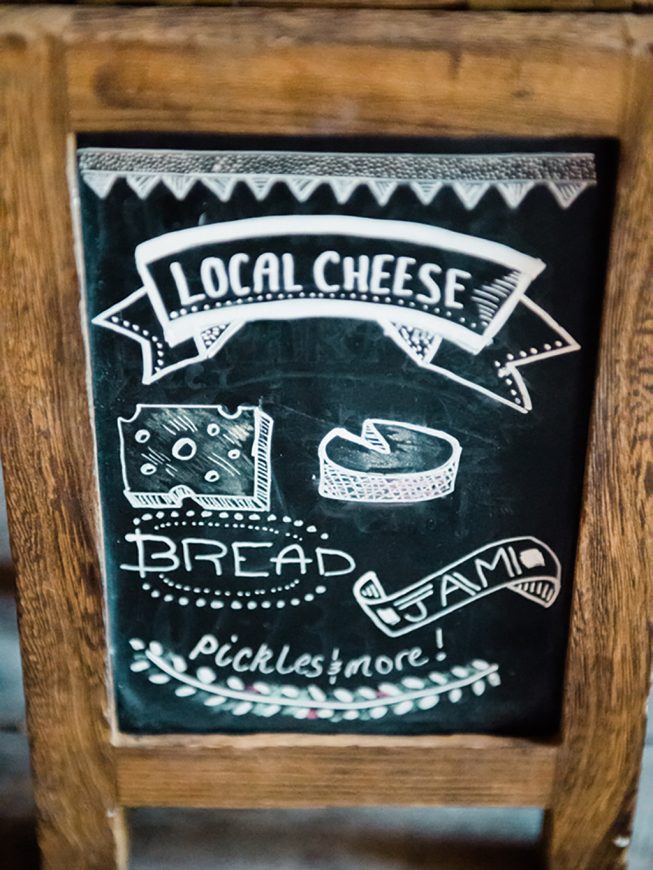 LOCAL CHEESE
BREAD
JAM
Pickles & more!